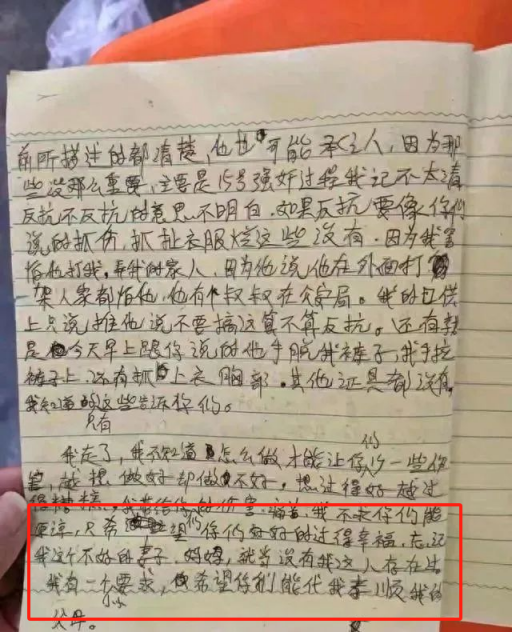 前所描述的都清楚,他也可能承认人,因为那
些没那么重要,主要是15号强奸过程我记不太清
反抗不反抗的意思不明白,如果反抗要像你们
说的抓伤,抓扯衣服烂这些没有,因为我害
怕他打我,弄我的家人,因为他说他在外面打
架人家都怕他,他有个叔叔在公安局。我的口供
上只说推他,说不要搞这算不算反抗。还有就
是今天早上跟你说的他手脱我裤子,我手拉
裤子上,还有抓上衣胸部。其他证具都没有
我知道的只有这些告诉你们。
我走了,我不知道怎么做才能让你们少一些伤
害,越想做好却做不好。想过得好越过
得糟糕,我带给你们的伤害,我不求你们能
原谅,只希望你们好好的过得幸福,忘记
我这个不好的妻子、妈妈,就当没有我这人存在过
我有一个小小要求,希望你们能代我孝顺我的
父母。